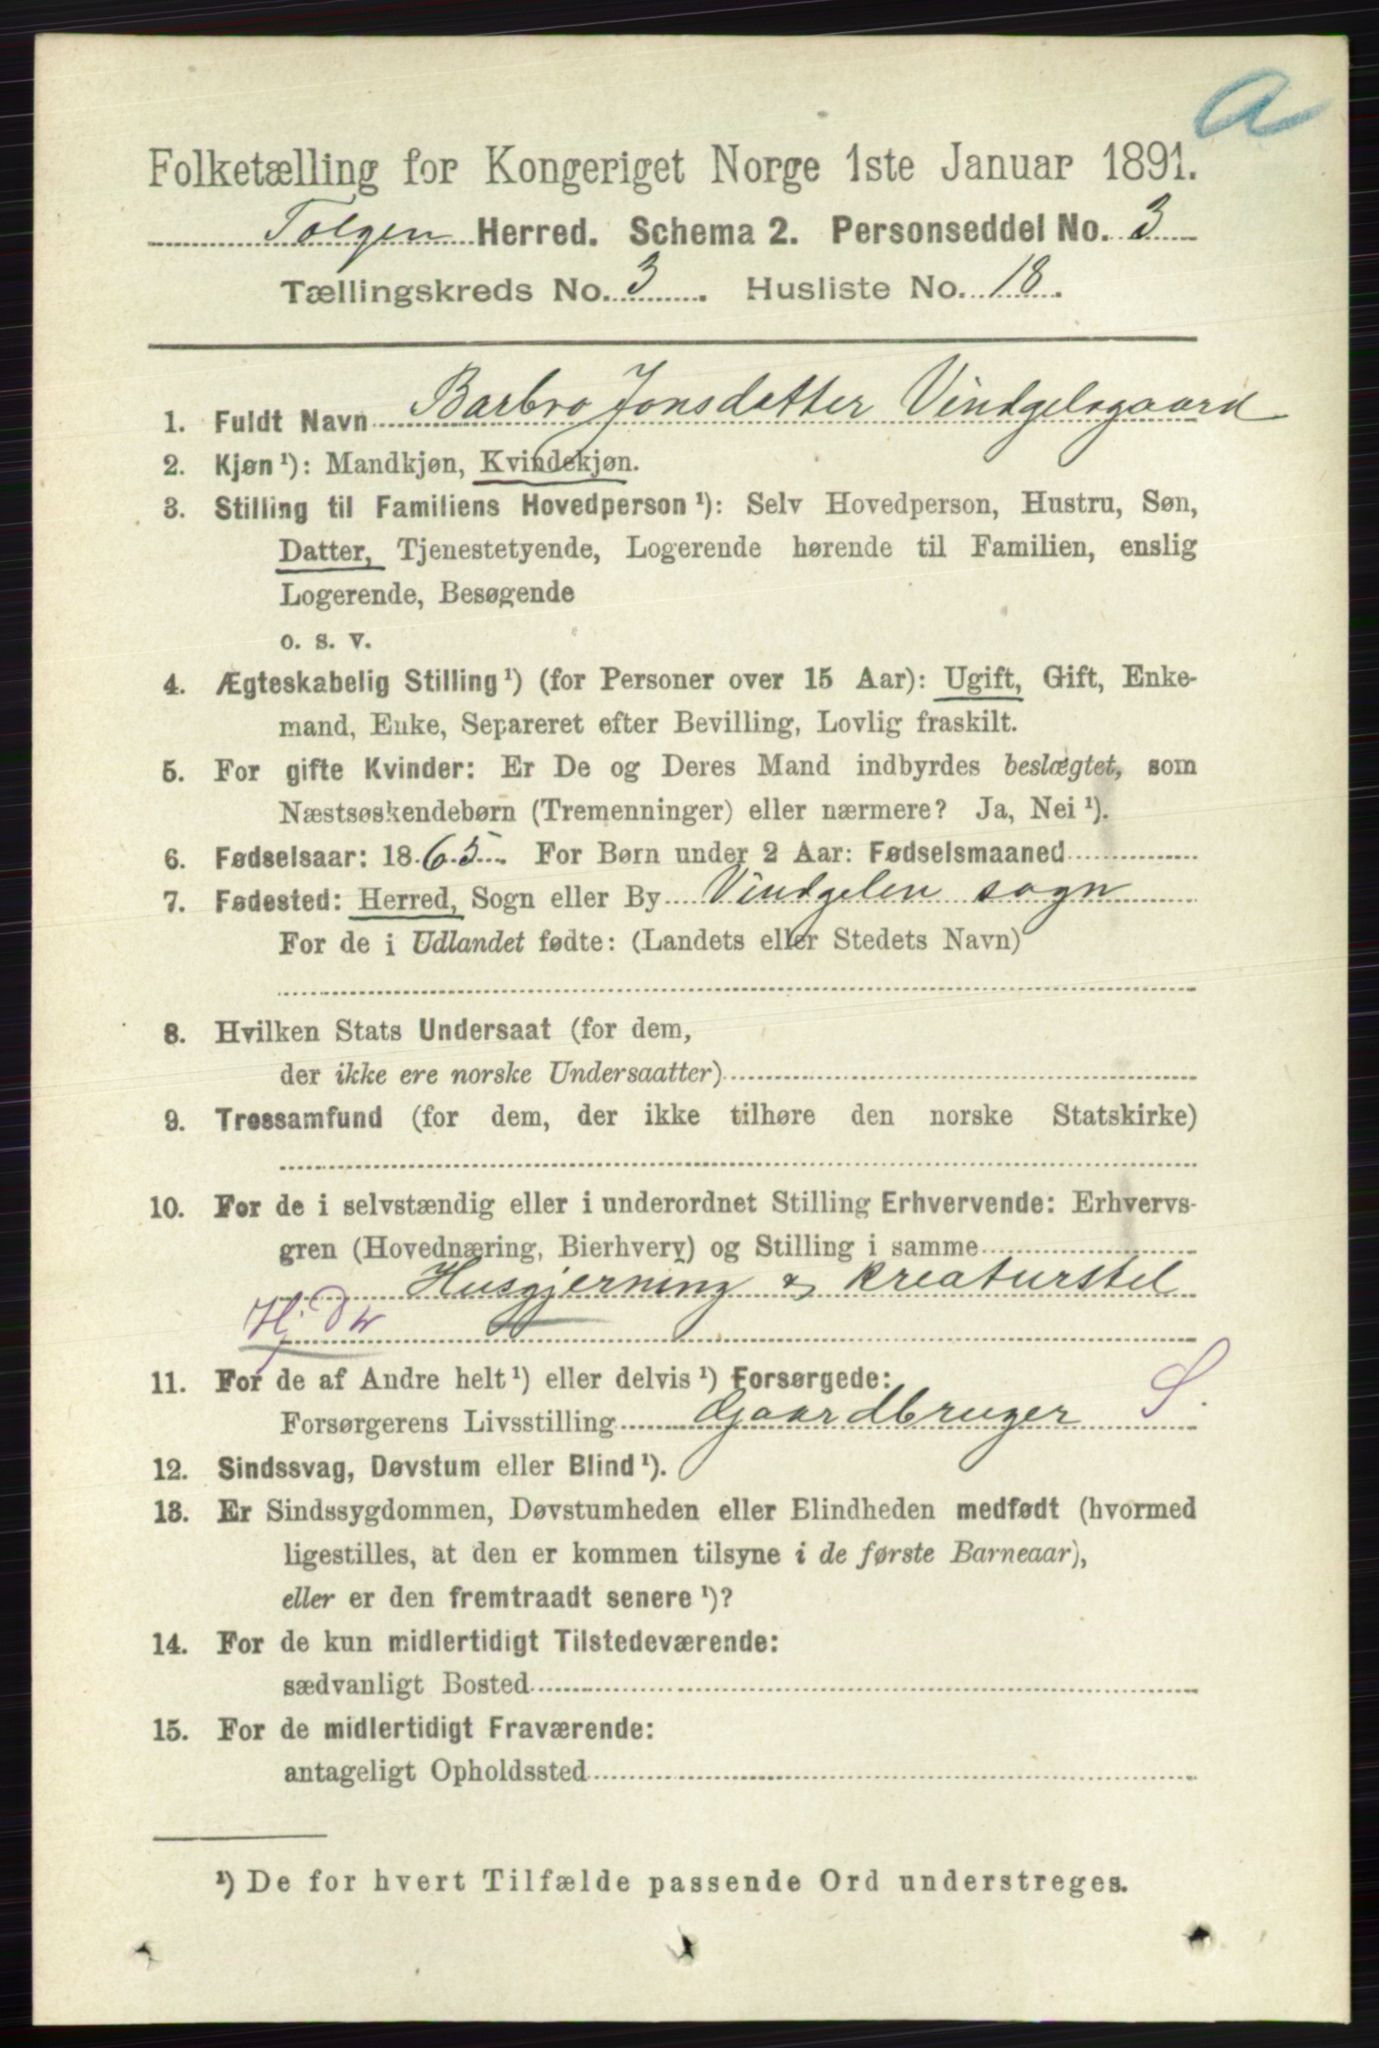 A
Folketælling for Kongeriget Norge 1ste Januar 1891.
Tolgen Herred. Schema 2. Personseddel No. 3
Tællingskreds No. 3. Husliste No. 18.
1. Fuldt Navn Barbro Jonsdatter Vindgelsgaard
2. Kjøn ¹): Mandkjøn, Kvindekjøn.
3. Stilling til Familiens Hovedperson ¹): Selv Hovedperson, Hustru, Søn,
Datter, Tjenestetyende, Logerende hørende til Familien, enslig
Logerende, Besøgende
o. s. v.
4. Ægteskabelig Stilling ¹) (for Personer over 15 Aar): Ugift, Gift, Enke-
mand, Enke, Separeret efter Bevilling, Lovlig fraskilt.
5. For gifte Kvinder: Er De og Deres Mand indbyrdes beslægtet, som
Næstsøskendebørn (Tremenninger) eller nærmere? Ja, Nei ¹).
6. Fødselsaar: 1865. For Børn under 2 Aar: Fødselsmaaned
7. Fødested: Herred, Sogn eller By Vindgelen sogn
For de i Udlandet fødte: (Landets eller Stedets Navn)
8. Hvilken Stats Undersaat (for dem,
der ikke ere norske Undersaatter)
9. Trossamfund (for dem, der ikke tilhøre den norske Statskirke)
10. For de i selvstændig eller i underordnet Stilling Erhvervende: Erhvervs-
gren (Hovednæring, Bierhverv) og Stilling i samme
Husgjerning & Kreaturstel
Hj. Dw
11. For de af Andre helt ¹) eller delvis ¹) Forsørgede:
Forsørgerens Livsstilling Gaardbruger S.
12. Sindssvag, Døvstum eller Blind ¹).
13. Er Sindssygdommen, Døvstumheden eller Blindheden medfødt (hvormed
ligestilles, at den er kommen tilsyne i de første Barneaar),
eller er den fremtraadt senere ¹)?
14. For de kun midlertidigt Tilstedeværende:
sædvanligt Bosted
15. For de midlertidigt Fraværende:
antageligt Opholdssted
¹) De for hvert Tilfælde passende Ord understreges.